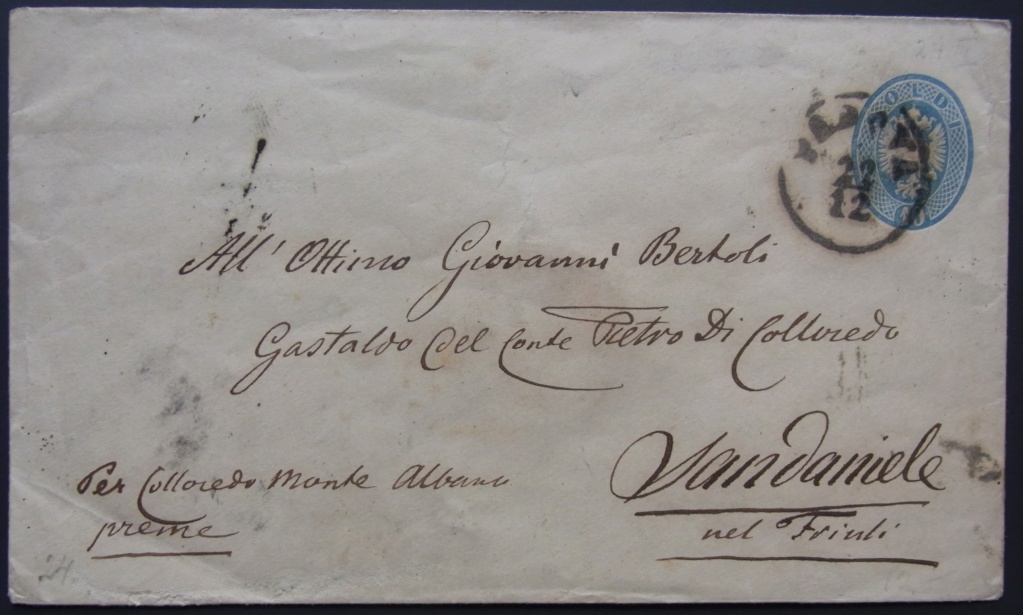 SOLDI
22
12
All' Ottimo Giovanni Bertoli
Gastaldo del Conte Pietro Di Colloredo
Per Colloredo Monte Albano
preme
Sandaniele
nel Friuli
24.